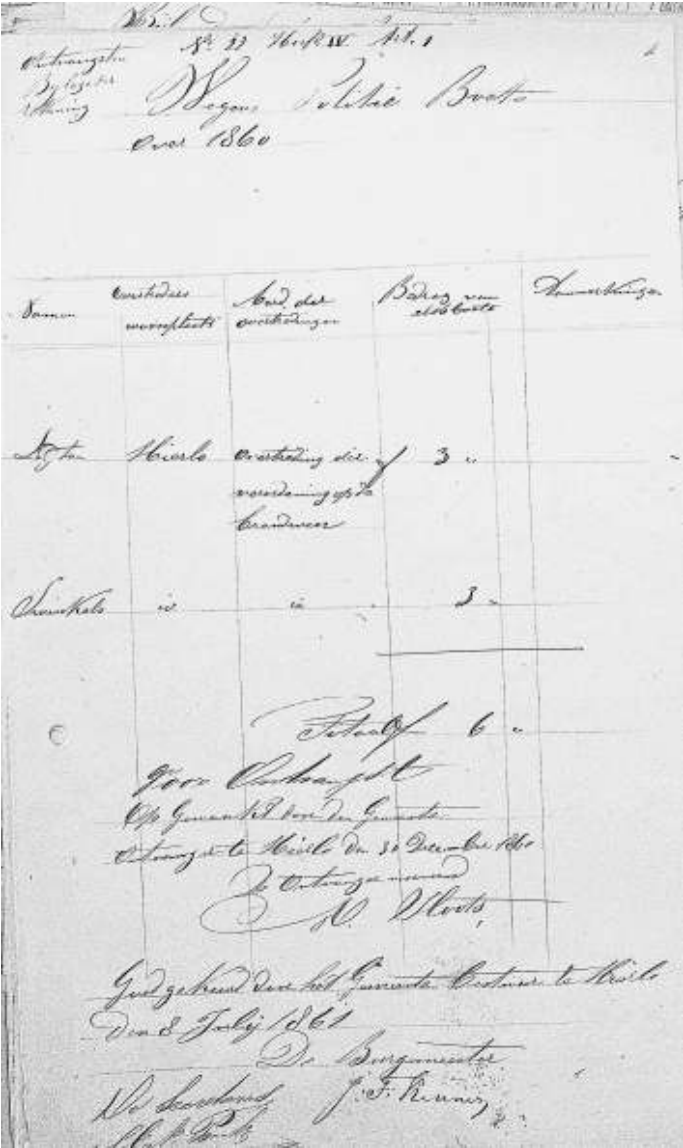 Ontvangsten
Bylage der
Rekening
No 22 Hoofd IV Art. 1
Wegens Politie Boete
over 1860
Namen
Overtreders woonplaats
Aard der overtredingen
Bedrag van elke boete
Aanmerkingen
Mierlo overtreding der f 3 "
verordening op de
brandweer
Swinkels id id 3 "
Totaal f 6 "
Voor Ontvangst
Op Gemaakt door den Gemeente
Ontvanger te Mierlo den 30 December 1860
De Ontvanger
Goedgekeurd door het Gemeente Bestuur te Mierlo
den 8 July 1861
De Burgemeester
De Secretaris